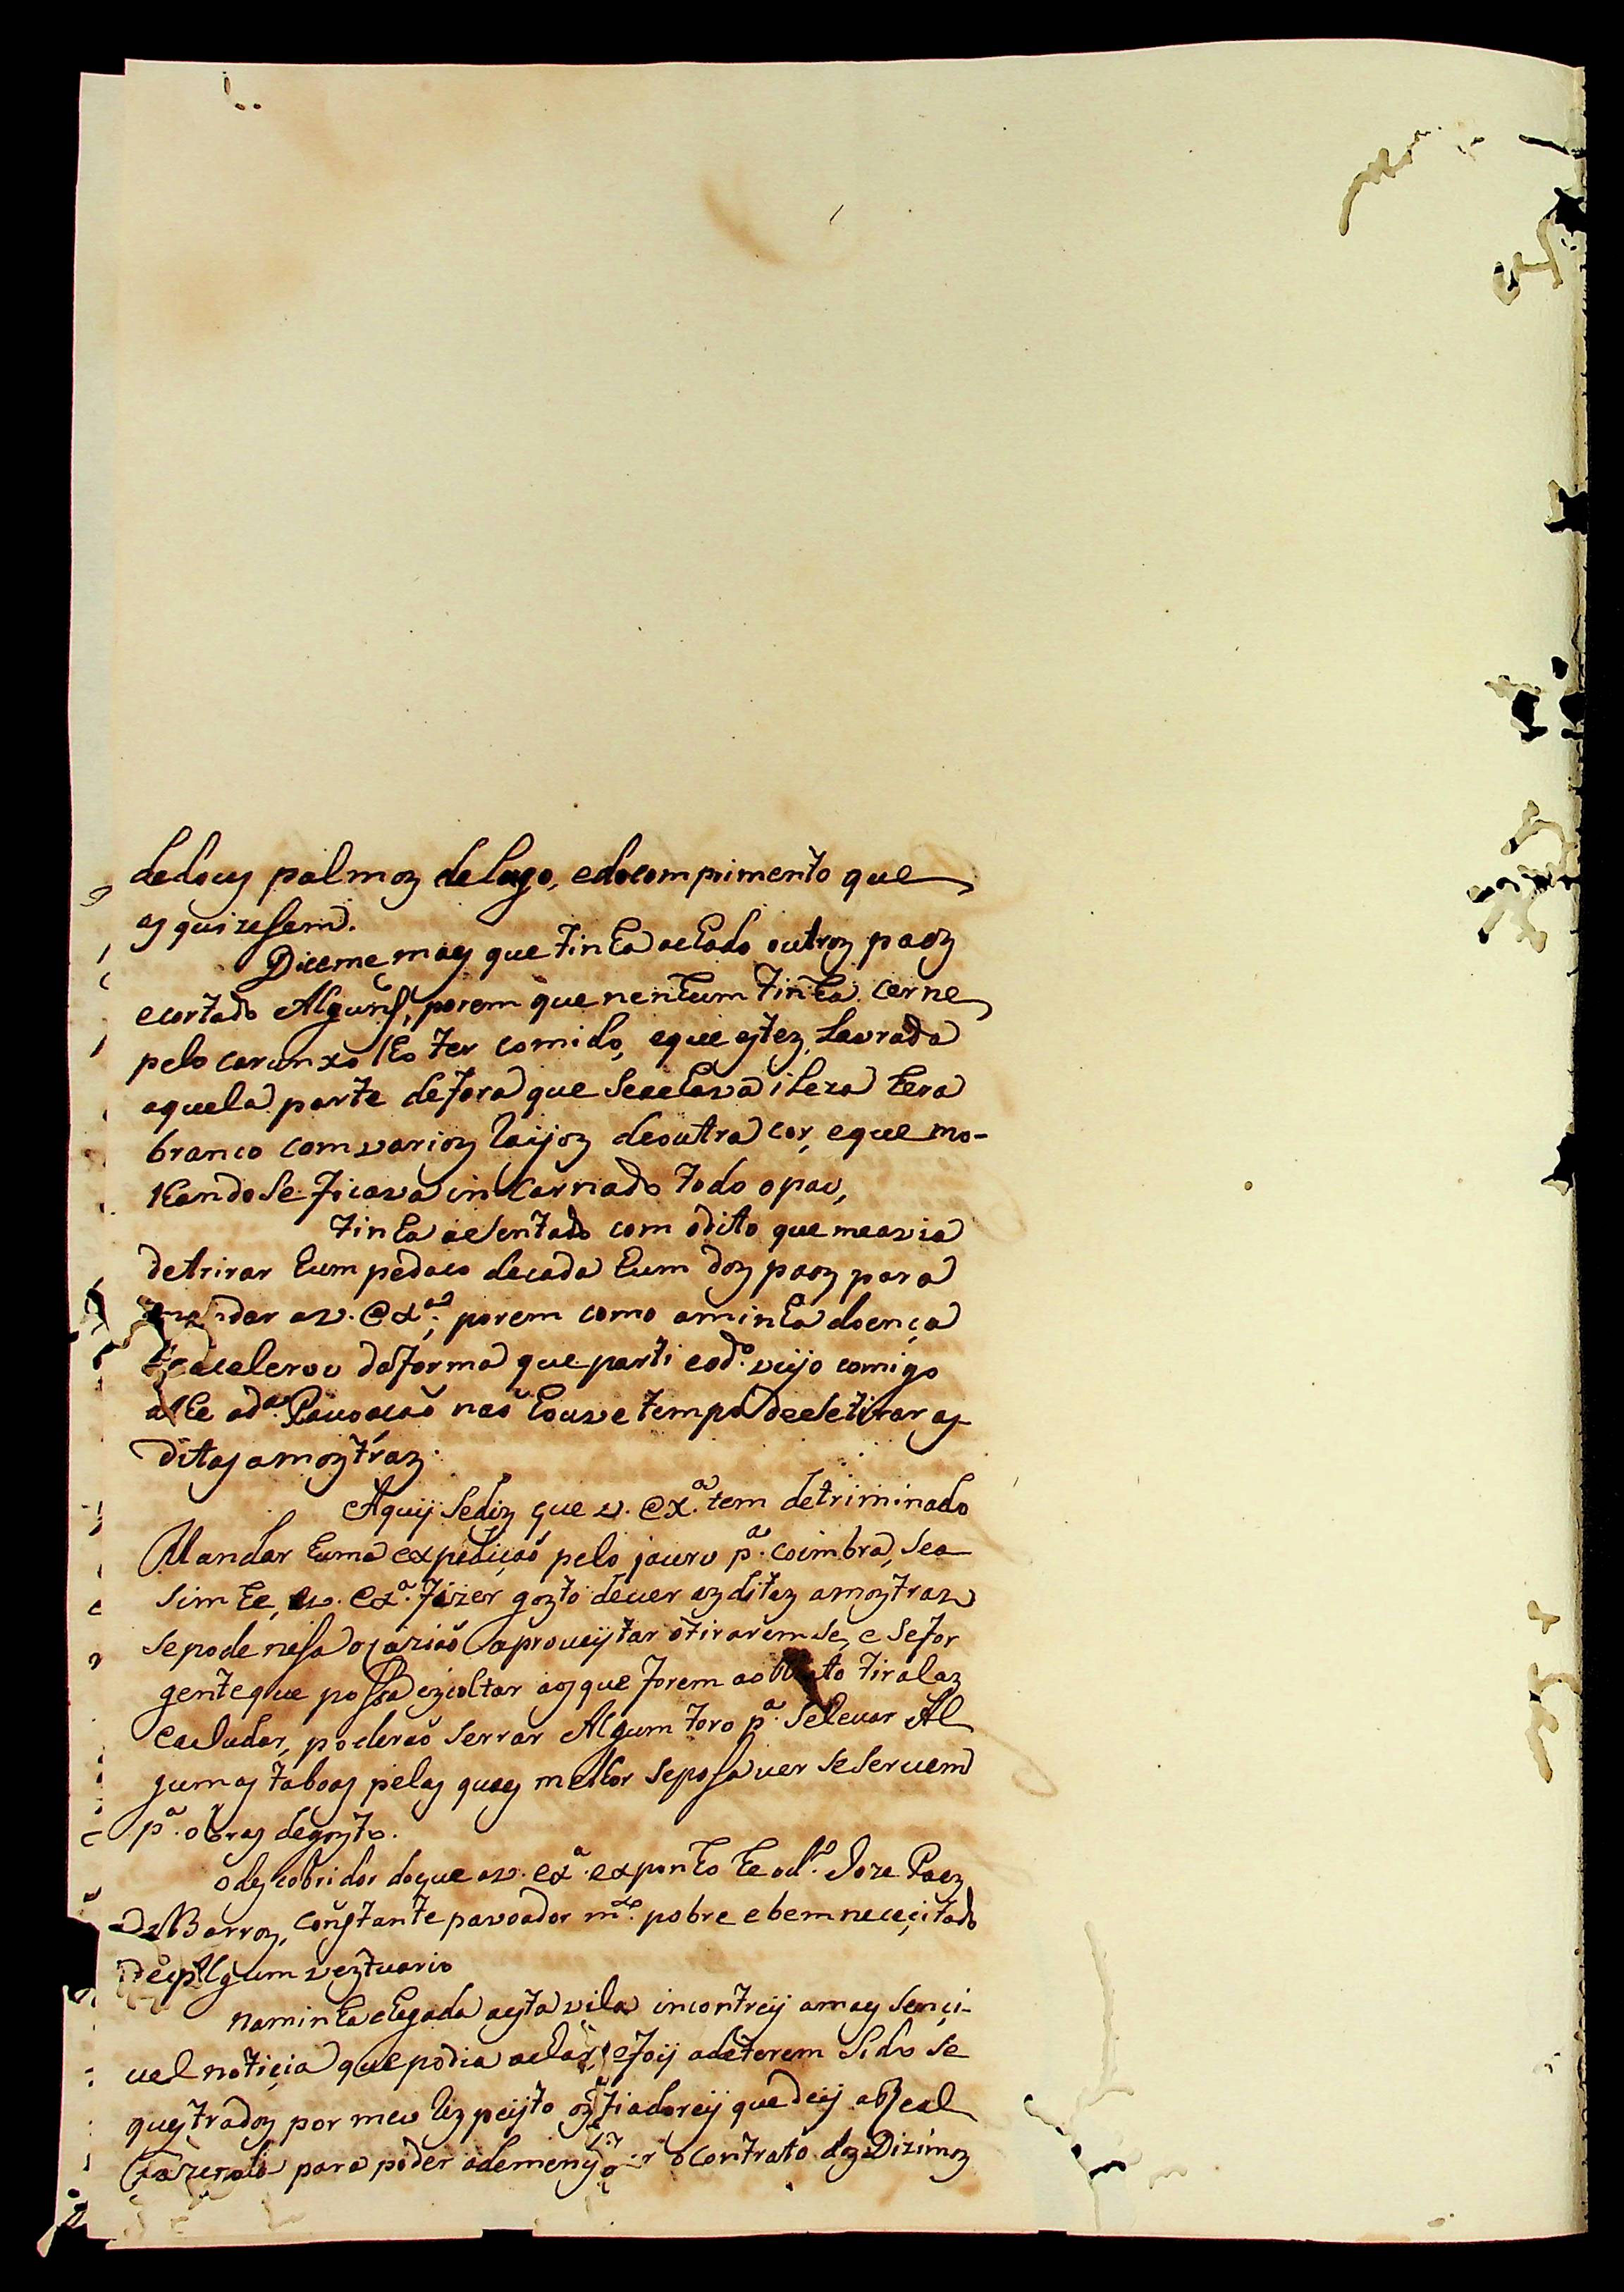 dedoes palmos delago, edocompimento que
as quizesem.
Diceme mais que tinha achado outros paos
ecortado Alguns, porem que nenhum tinha cerne
pelo carunxo lho ter comido, eque estes, Lavrada
aquela parte defora que seachava ileza hera
branco comvarios laijos deoutra cor, eque mo-
lhandose ficava incarnado todo opao,
tinha asentado com odito que meavia
detrirar hum pedaco decada hum dos paos para
mandar av. Exª; porem como aminha doença
seacelerou daforma que parti eodº. veijo comigo
athe adª. Pavoacaõ naõ houve tempo deesetirar as
ditas amostras.
Aquij sediz que v. Exª. tem detriminado
Mandar huma expediçaõ pelo jauru pª. coimbra, sea
sim he, ev. Exª. fizer gosto dever asditas amostras
sepode nesa ocaziaõ aproveijtar otirarem se, e sefor
gente que possa ezcoltar aos que forem ao to tiralas
eaiudar, poderaõ serrar Algum toro pª. selevar Al
gumas taboas pelas quaes melhor seposa ver se servem
pª. obras degosto.
odescobridor doque av. exª. exponho he odº. Joze Paes
De Barros, constante pavoador mtº. pobre ebem neceçitado
de Algum vestuario
naminha chegada aesta vila incontreij amais senci-
vel noticia que podia achar, efoij adeterem sido se
questrados por meu Respeijto os fiadoreij que deij aReal
fazenda para poder ademenistrar ocontrato dos Dizimos